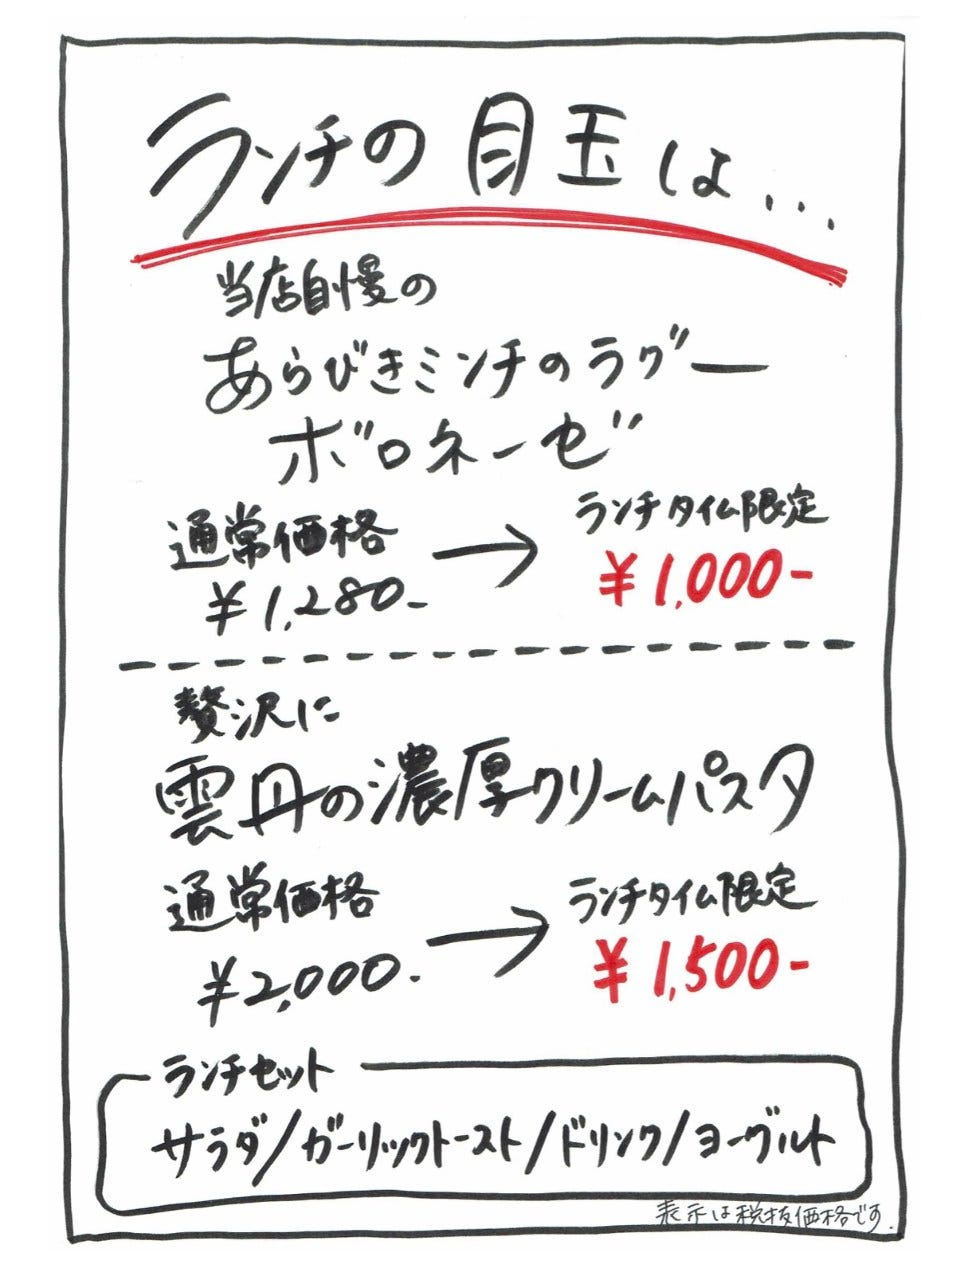 ランチの目玉は...
当店自慢の
あらびきミンチのラグー
ボロネーゼ
通常価格 → ランチタイム限定
¥1,280- ¥1,000-
贅沢に
雲丹の濃厚クリームパスタ
通常価格 → ランチタイム限定
¥2,000- ¥1,500-
ランチセット
サラダ/ガーリックトースト/ドリンク/ヨーグルト
表示は税抜価格です.